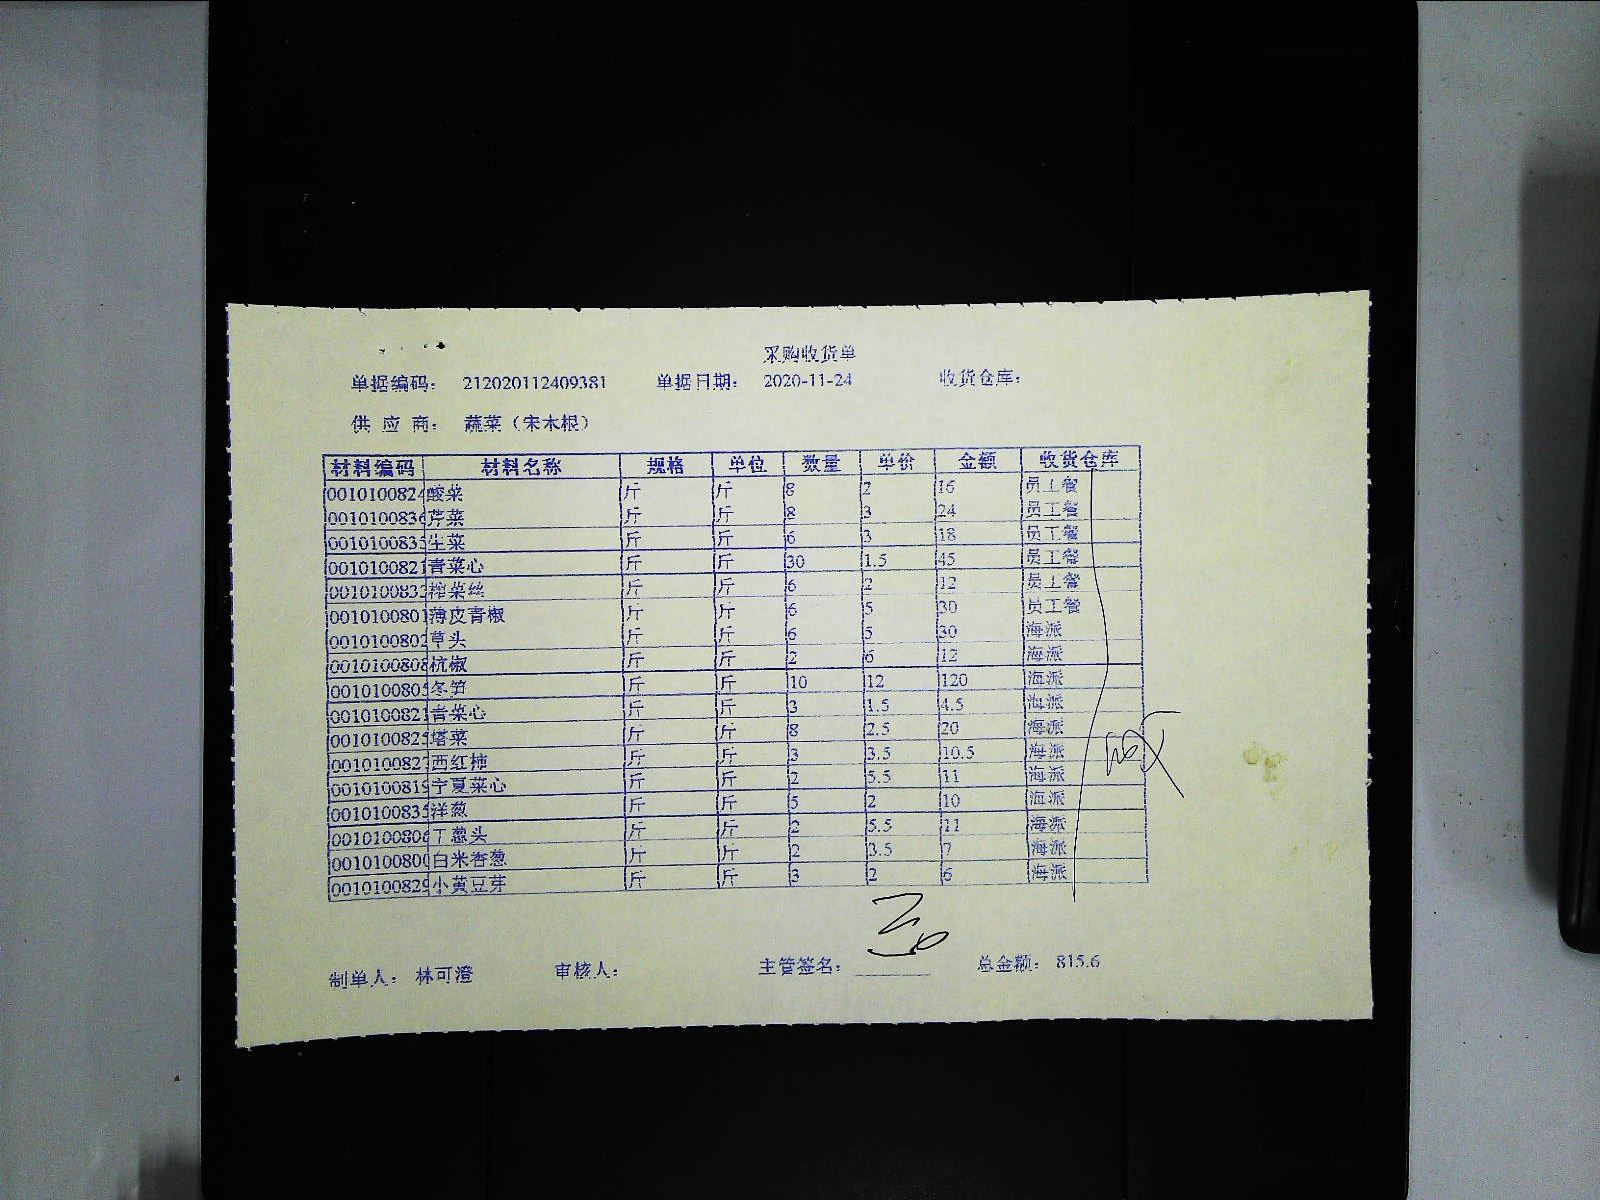 采购收货单
单据编码： 212020112409381 单据日期： 2020-11-24 收货仓库：
供 应 商： 蔬菜（宋木根）
材料编码 材料名称 规格 单位 数量 单价 金额 收货仓库
0010100824 酸菜 斤 斤 8 2 16 员工餐
0010100836 芹菜 斤 斤 8 3 24 员工餐
0010100835 生菜 斤 斤 6 3 18 员工餐
0010100821 青菜心 斤 斤 30 1.5 45 员工餐
001010083 榨菜丝 斤 斤 6 2 12 员工餐
0010100801 薄皮青椒 斤 斤 6 5 30 员工餐
0010100802 草头 斤 斤 6 5 30 海派
0010100808 杭椒 斤 斤 2 6 12 海派
0010100805 冬笋 斤 斤 10 12 120 海派
0010100821 青菜心 斤 斤 3 1.5 4.5 海派
0010100825 塔菜 斤 斤 8 2.5 20 海派
001010082 西红柿 斤 斤 3 3.5 10.5 海派
0010100819 宁夏菜心 斤 斤 2 5.5 11 海派
0010100835 洋葱 斤 斤 5 2 10 海派
0010100806 干葱头 斤 斤 2 5.5 11 海派
0010100800 白米香葱 斤 斤 2 3.5 7 海派
0010100829 小黄豆芽 斤 斤 3 2 6 海派
制单人： 林可澄 审核人： 主管签名： 总金额： 815.6